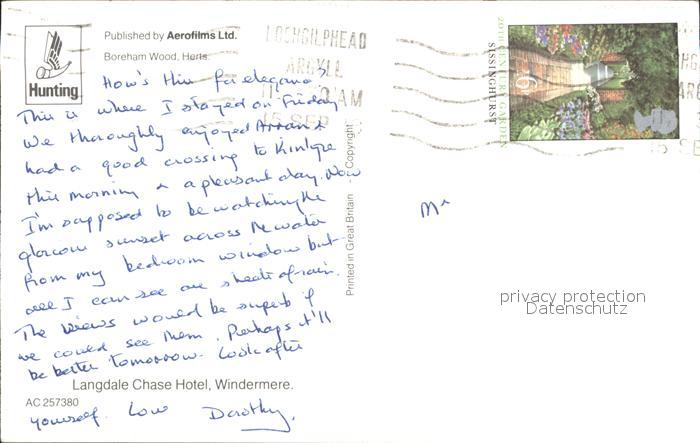 Published by Aerofilms Ltd.
Boreham Wood, Herts.
Hunting
LOCHGILPHEAD
ARGYLL
AM
15 SEP
20TH CENTURY GARDEN
SISSINGHURST
How's this for elegance?
This is where I stayed on Friday
We thoroughly enjoyed Arran &
had a good crossing to Kintyre
this morning & a pleasant day. Now
I'm supposed to be watching the
glorious sunset across the water
from my bedroom window but
all I can see are sheets of rain.
The views would be superb if
we could see them. Perhaps it'll
be better tomorrow. Look after
Langdale Chase Hotel, Windermere.
AC 257380
yourself. Love Dorothy.
Printed in Great Britain Copyright
Mr
privacy protection
Datenschutz
15 SE